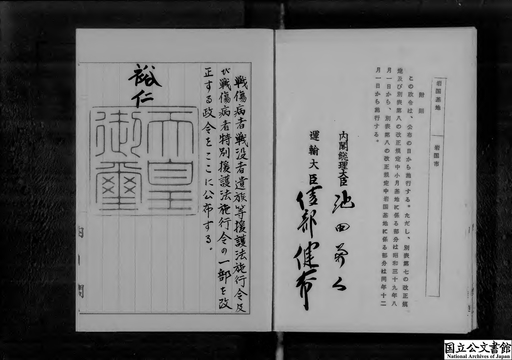 岩国基地
岩国市
附則
この政令は、公布の日から施行する。ただし、別表第七の改正規
定及び別表第八の改正規定中小月基地に係る部分は昭和三十九年八
月一日から、別表第八の改正規定中岩国基地に係る部分は同年十二
月一日から施行する。
内閣総理大臣 池田勇人
運輸大臣 綾部健太郎
戦傷病者戦没者遺族等援護法施行令及
び戦傷病者特別援護法施行令の一部を改
正する政令をここに公布する。
裕仁
天皇
御璽
国立公文書館
National Archives of Japan